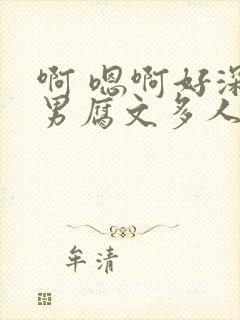 啊 嗯啊好深
男腐文多人
牟清